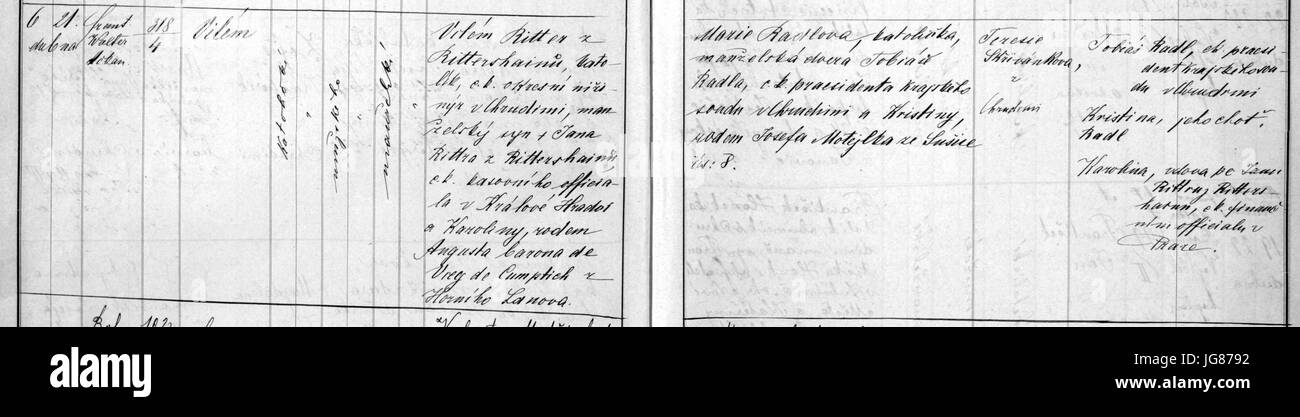 6 21.
dubna
Walter
děkan
318
4
Vilém
katolické
mužského
manželské
Vilém Ritter z
Rittershainů, kato-
lík, c.k. okresní inže-
nýr v Chrudimi, man-
želský syn † Jana
Rittra z Rittershainů
c.k. causovního officiá-
la v Králové Hradci
a Karoliny, rodem
Augusta barona de
Vreg de Cumptich z
Horního Lanova.
Marie Radlova, katolička,
manželská dcera Tobiáše
Radla, c.k. praesidenta krajského
soudu v Chrudimi a Kristiny,
rodem Josefa Motejlka ze Sušice
čís: 8.
Terezie
Skřivánkova,
z
Chrudimi
Tobiáš Radl, c.k. praesi-
dent krajského sou-
du v Chrudimi
Kristina, jeho choť.
Radl
Karolina, vdova po Janu
Rittru z Ritters-
hainu, c.k. finanč-
ním officialu v
Praze.
alamy stock photo
Image ID: JG8792
www.alamy.com